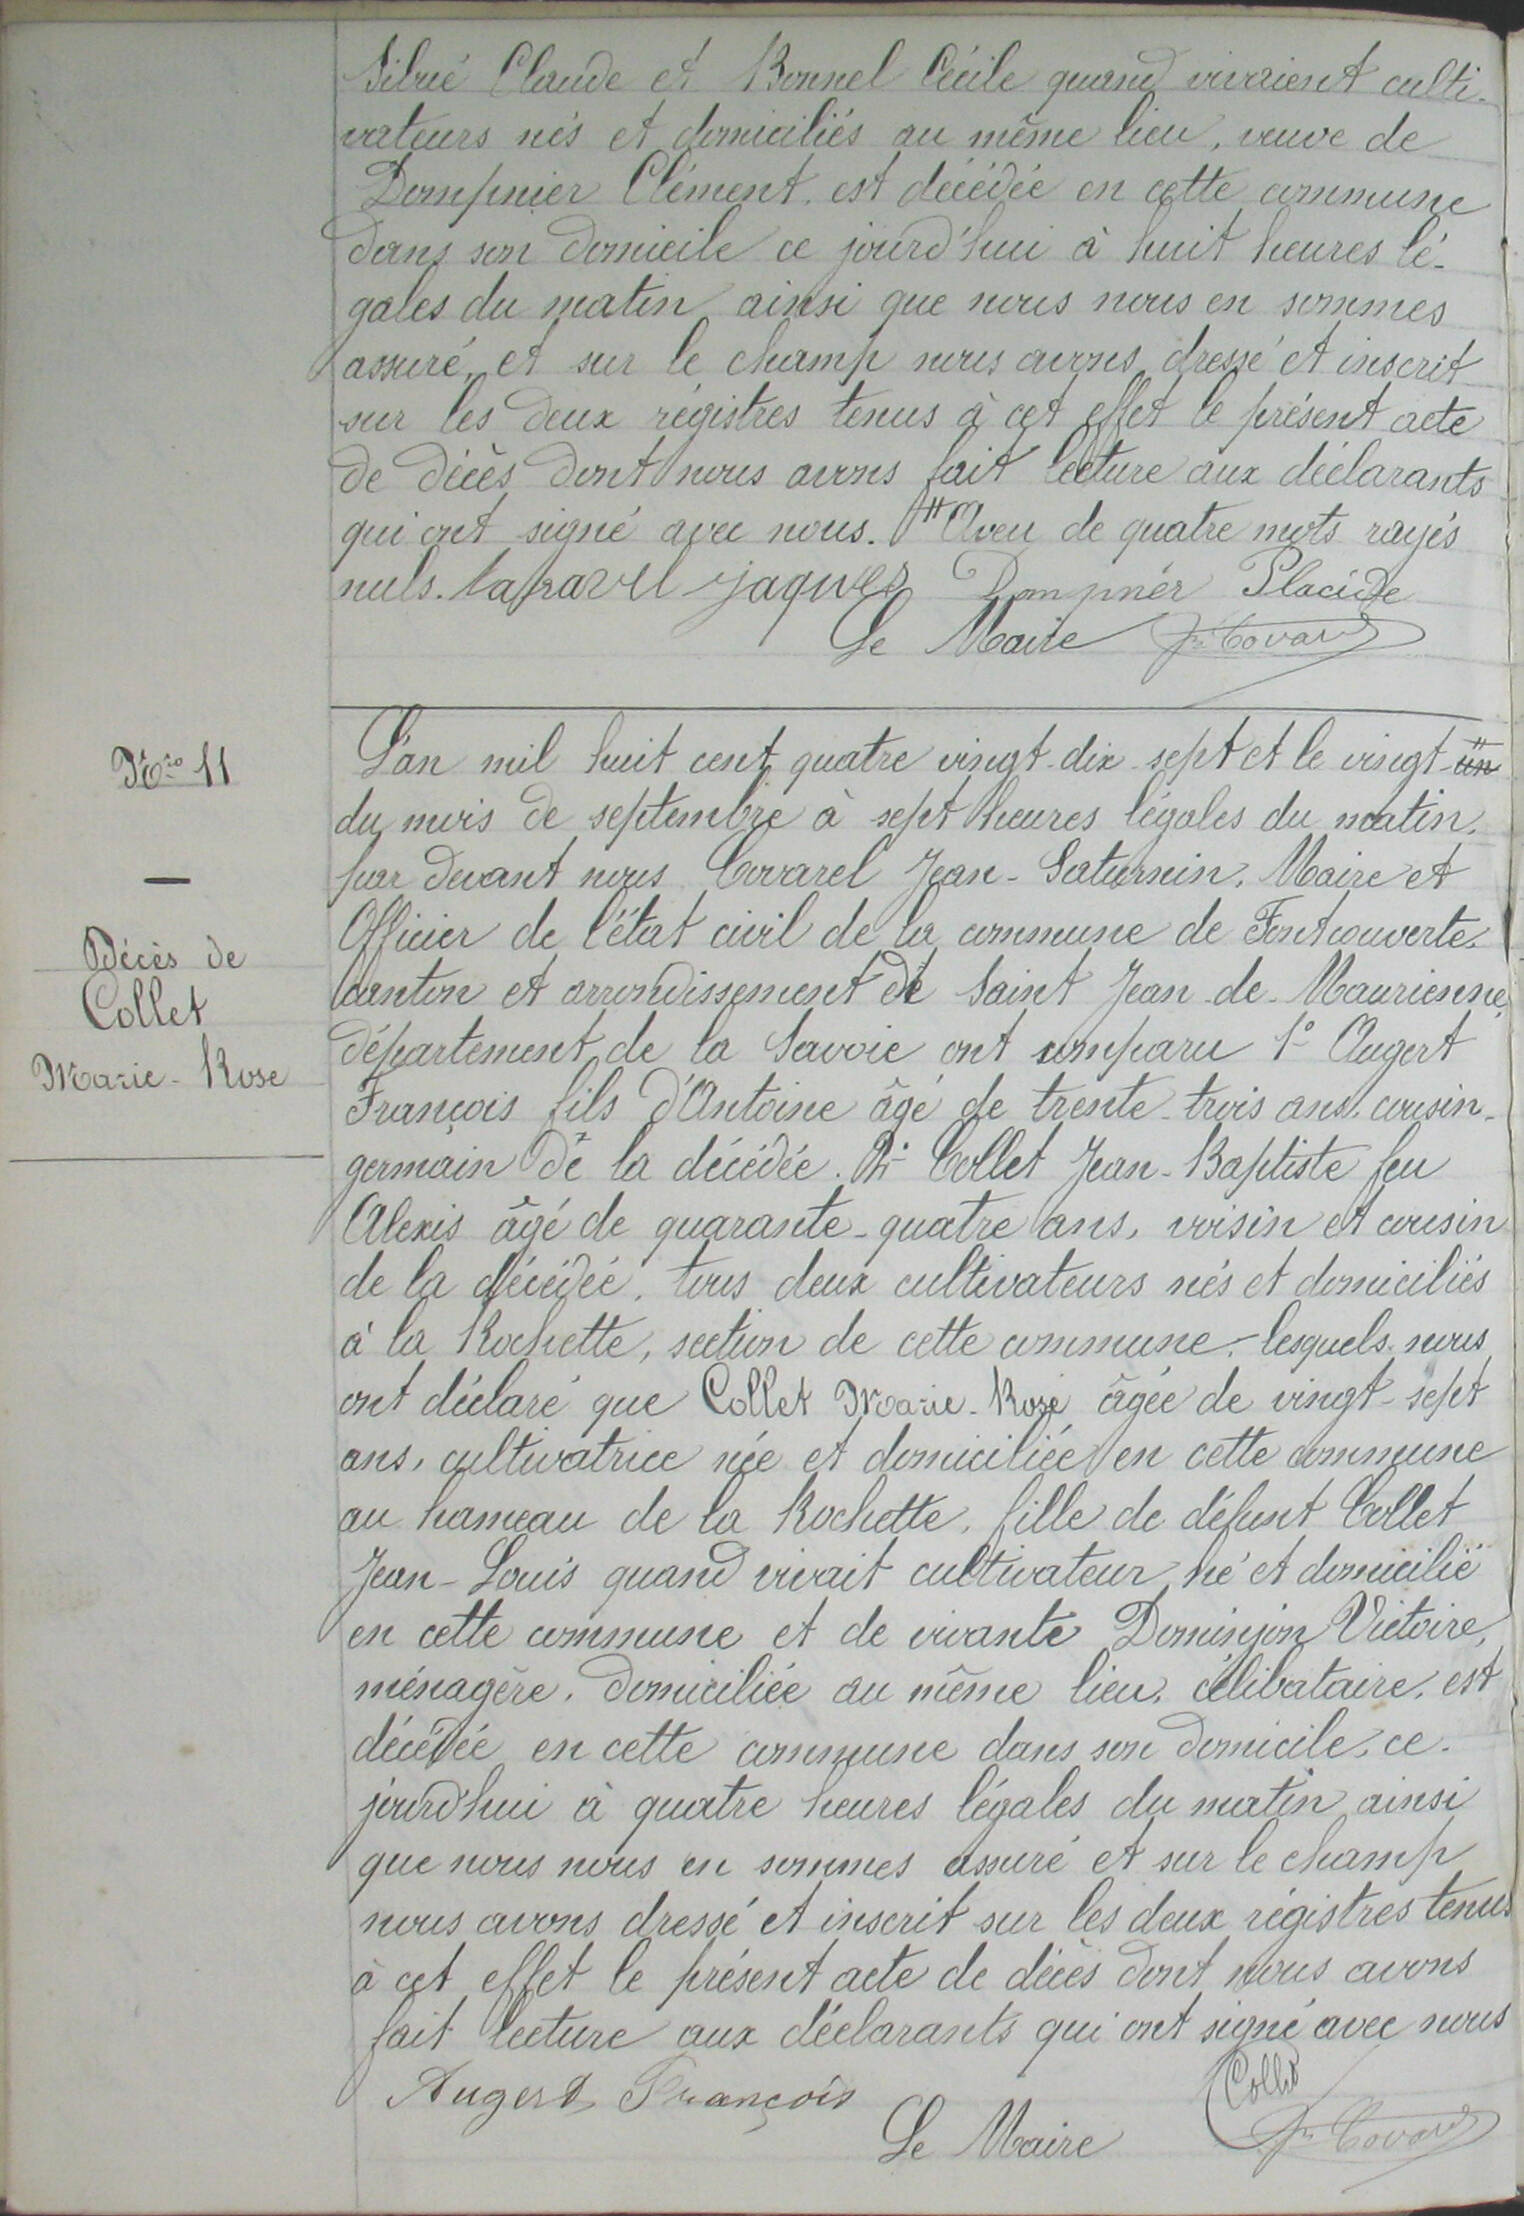 Silvié Claude et Bonnel Cécile quand vivaient culti-
vateurs nés et domiciliés au même lieu, veuve de
Dompnier Clément. est décédée en cette commune
dans son domicile ce jourd'hui à huit heures lé-
gales du matin ainsi que nous nous en sommes
assuré, et sur le champ nous avons dressé et inscrit
sur les deux régistres tenus à cet effet le présent acte
de décès dont nous avons fait lecture aux déclarants
qui ont signé avec nous. # Aveu de quatre mots rayés
nuls. taravel jaques Dompnér Placide
Le Maire Jn Covarel
Nro 11
Décès de
Collet
Marie-Rose
L'an mil huit cent quatre vingt-dix-sept et le vingt-un
du mois de septembre à sept heures légales du matin.
par devant nous Covarel Jean-Saturnin, Maire et
Officier de l'état civil de la commune de Fontcouverte,
canton et arrondissement de Saint Jean-de-Maurienne,
département de la Savoie ont comparu 1° Augert
François fils d'Antoine âgé de trente-trois ans, cousin-
germain de la décédée. 2° Collet Jean-Baptiste feu
Alexis âgé de quarante-quatre ans, voisin et cousin
de la décédée, tous deux cultivateurs nés et domiciliés
à la Rochette, section de cette commune, lesquels nous
ont déclaré que Collet Marie-Rose âgée de vingt-sept
ans, cultivatrice née et domiciliée en cette commune
au hameau de la Rochette, fille de défunt Collet
Jean-Louis quand vivait cultivateur né et domicilié
en cette commune et de vivante Dominjon Victoire,
ménagère, domiciliée au même lieu, célibataire, est
décédée en cette commune dans son domicile, ce-
jourd'hui à quatre heures légales du matin ainsi
que nous nous en sommes assuré et sur le champ
nous avons dressé et inscrit sur les deux régistres tenus
à cet effet le présent acte de décès dont nous avons
fait lecture aux déclarants qui ont signé avec nous
Augert François Collet
Le Maire Jn Covarel